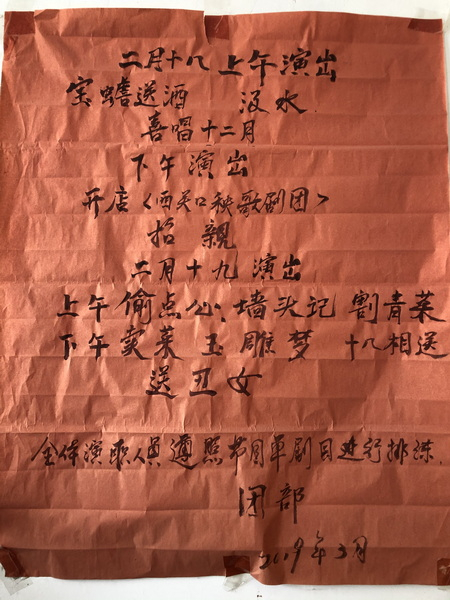 二月十八上午演出
宝蟾送酒 汲水
喜唱十二月
下午演出
开店<西关口秧歌剧团>
招亲
二月十九演出
上午偷点心 墙头记 割青菜
下午卖菜 玉雕梦 十八相送
送丑女
全体演职人员遵照节目单剧目进行排练.
团部
2019年3月